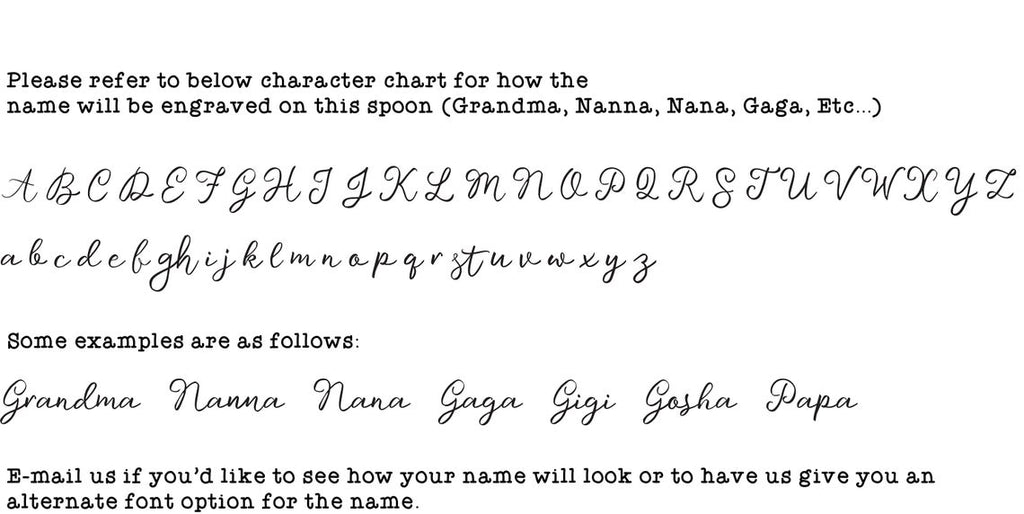 Please refer to below character chart for how the
name will be engraved on this spoon (Grandma, Nanna, Nana, Gaga, Etc...)
A B C D E F G H I J K L M N O P Q R S T U V W X Y Z
a b c d e f g h i j k l m n o p q r s t u v w x y z
Some examples are as follows:
Grandma Nanna Nana Gaga Gigi Gosha Papa
E-mail us if you'd like to see how your name will look or to have us give you an
alternate font option for the name.